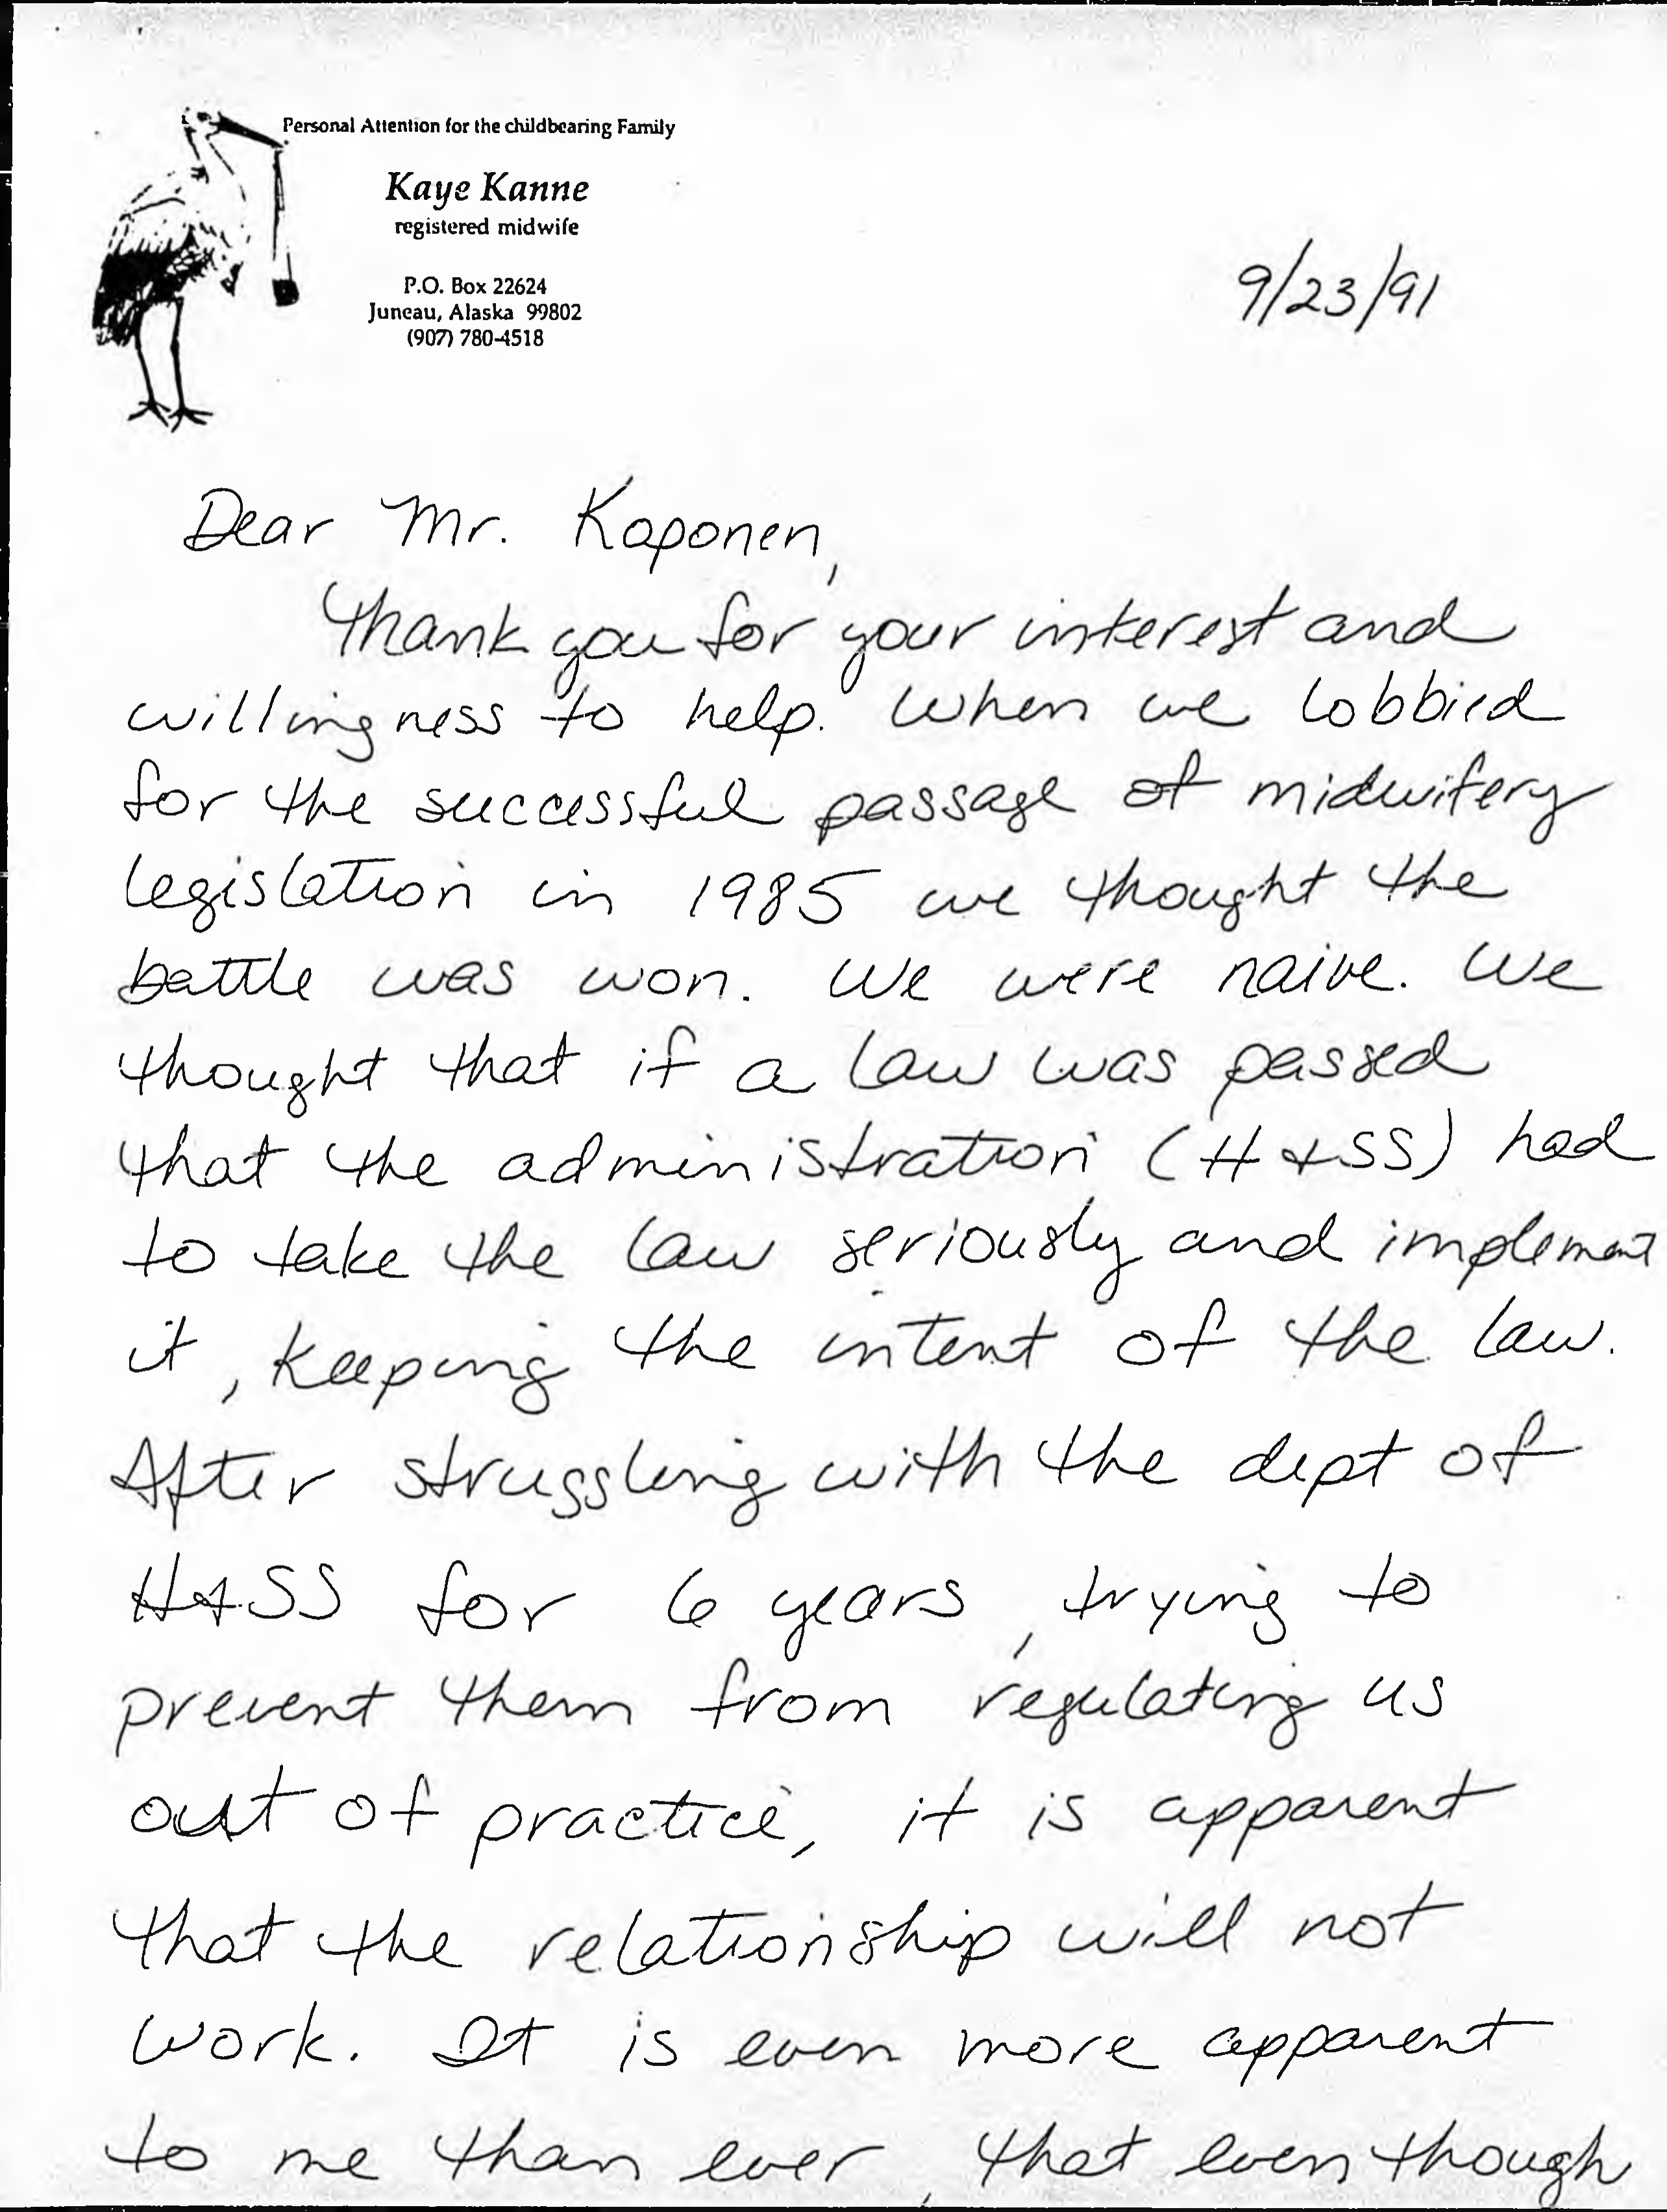 Personal Attention for the childbearing Family
Kaye Kanne
registered midwife
P.O. Box 22624
Juneau, Alaska 99802
(907) 780-4518
9/23/91
Dear Mr. Koponen,
Thank you for your interest and
willingness to help. When we lobbied
for the successful passage of midwifery
legislation in 1985 we thought the
battle was won. We were naive. We
thought that if a law was passed
that the administration (H+SS) had
to take the law seriously and implement
it, keeping the intent of the law.
After struggling with the dept of
H+SS for 6 years, trying to
prevent them from regulating us
out of practice, it is apparent
that the relationship will not
work. It is even more apparent
to me than ever, that even though